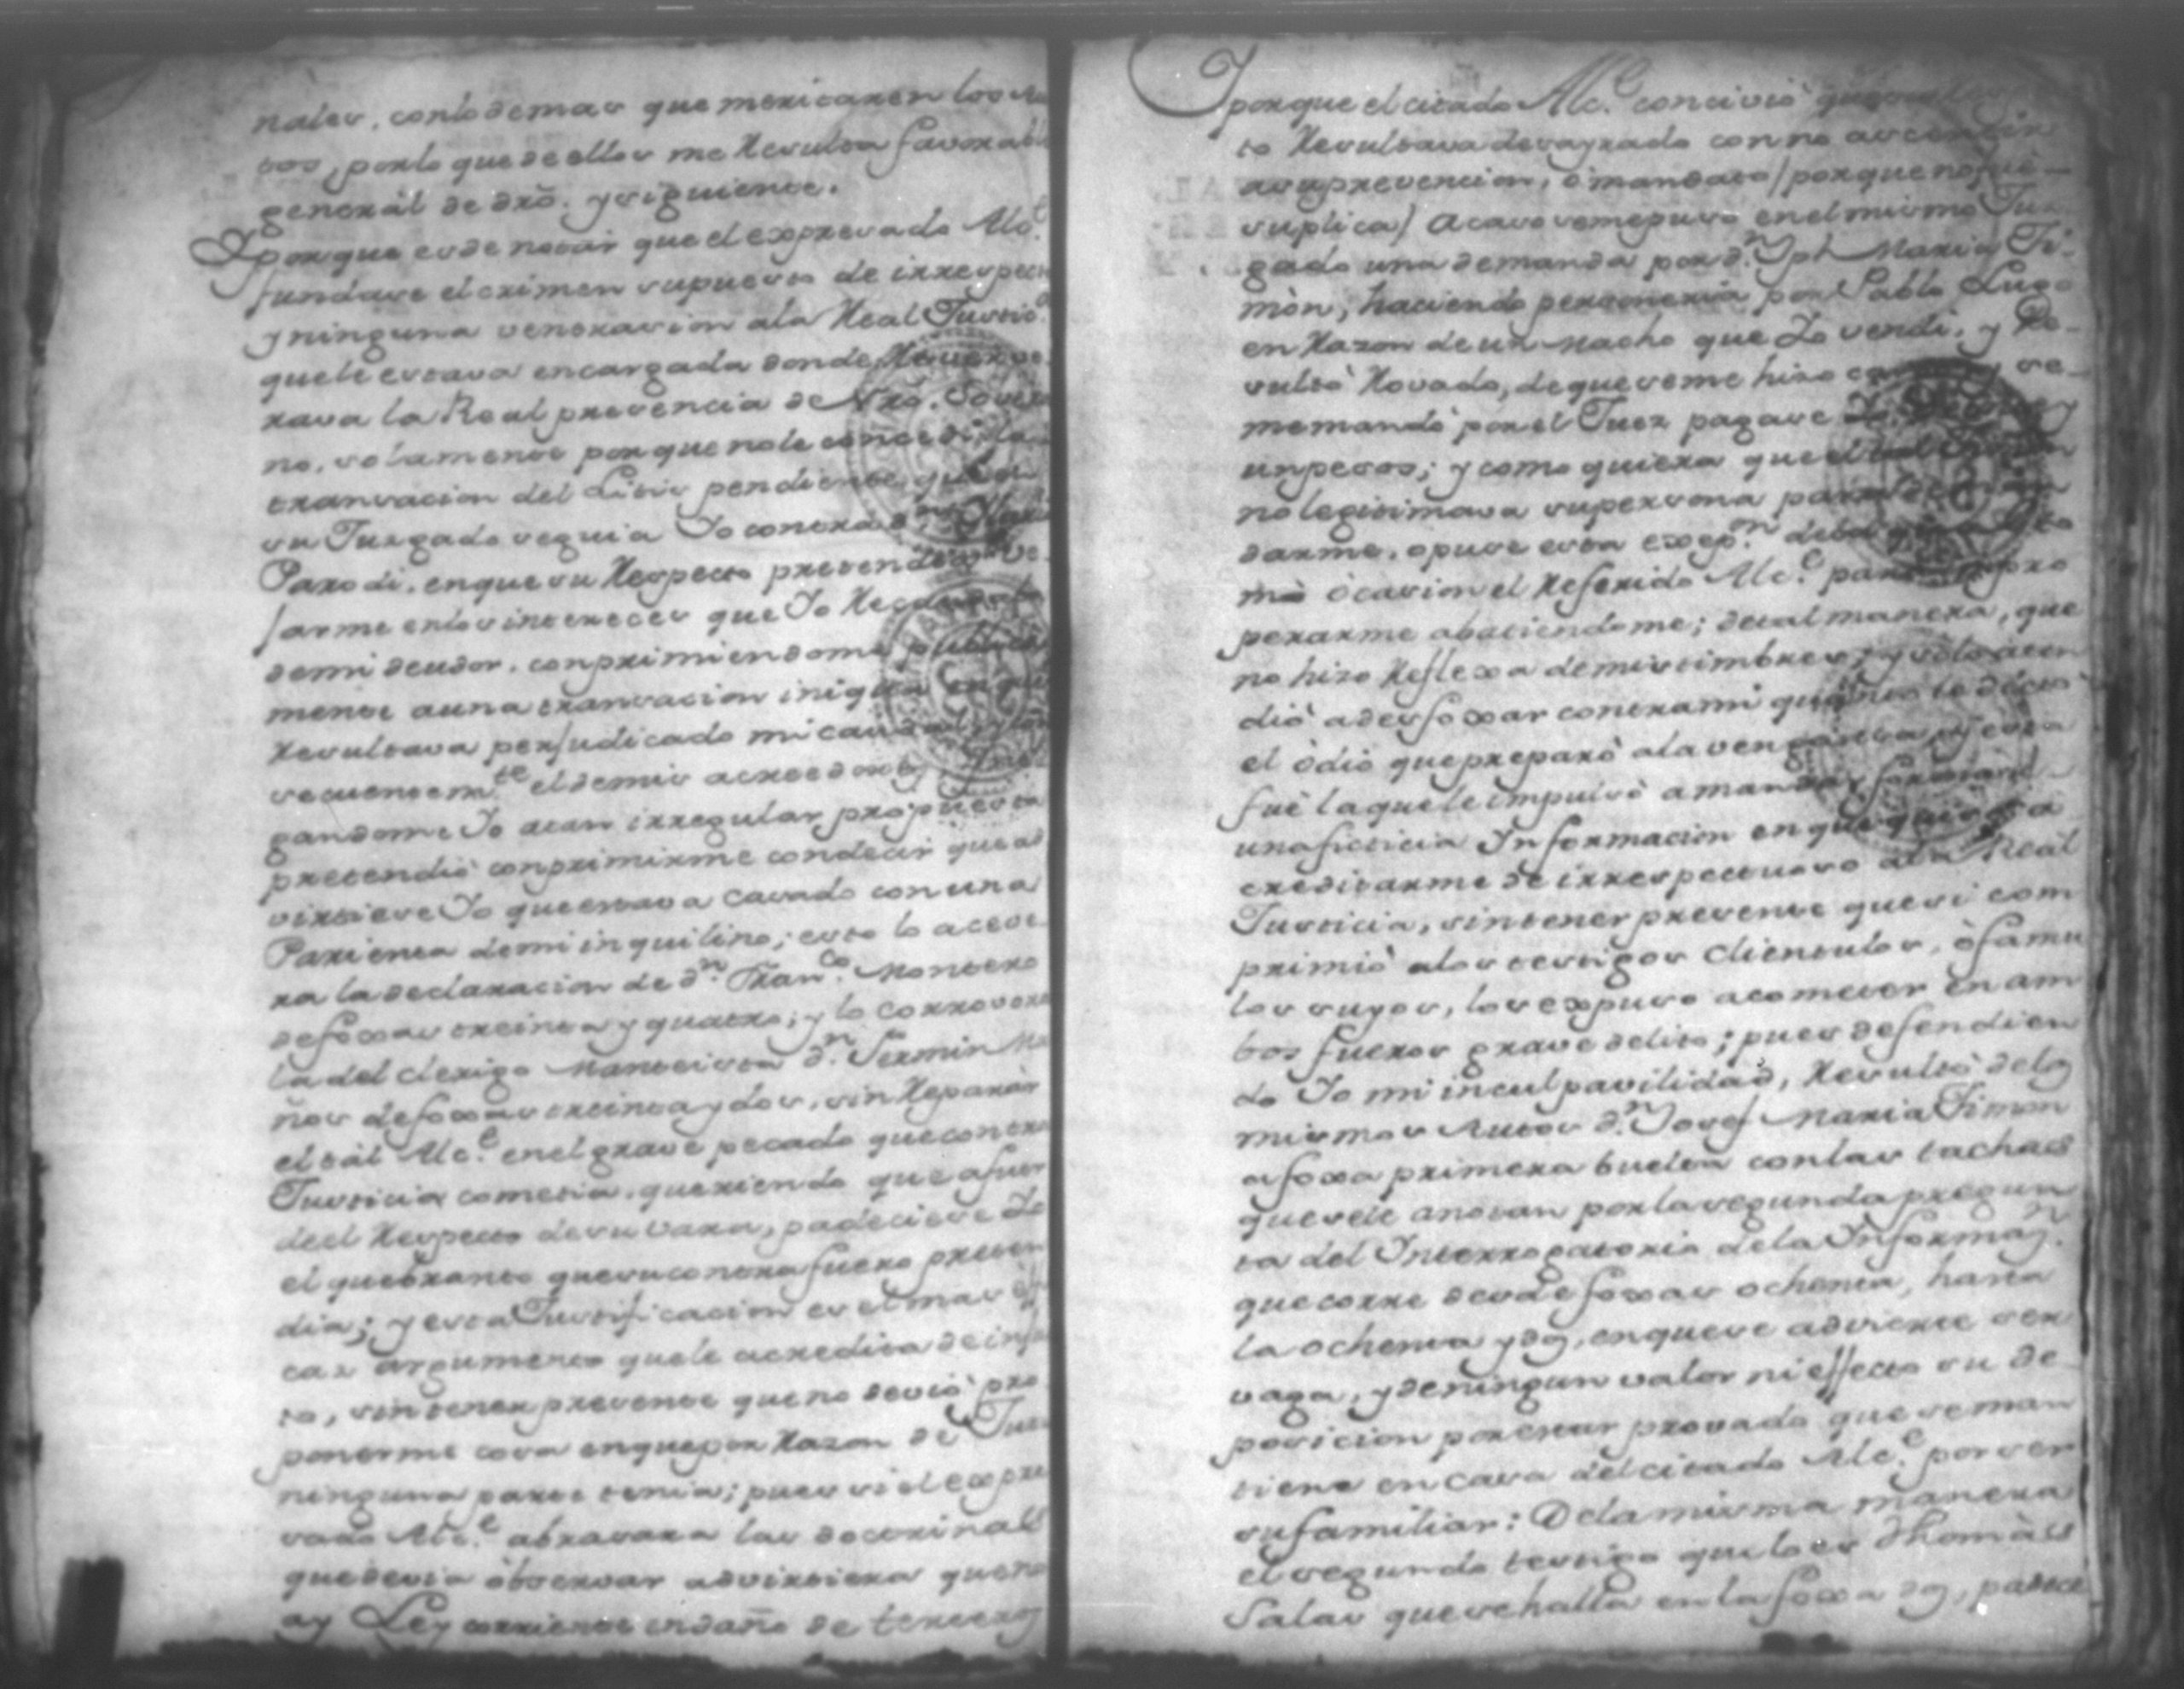 nales, con lo demas que mexicaren los Au
tos, por lo que de ellos me Resulta favorable
general de dro. y siguiente.
Y porque es de notar que el expresado Alc.e
fundase el crimen supuesto de irrespecto
y ninguna veneracion a la Real Justic.a
que le estava encargada donde
rava la Real presencia de Nro. Sovera
no, solamente porque no le concedi la
transacion del Litis pendiente, que en
su Jurgado seguia Yo contra
Parodi, en que su Respecto pretendio
sarme en los intereces que Yo
de mi deudor, conprimiendome publica
mente a una transacion iniqua en que
Resultava perjudicado mi caudal, y con
secuentem.te el de mis acreedores;
gandome Yo a tan irregular propuesta
pretendiò conprimirme con decir que ad
virtiese Yo que estava casado con una
Parienta de mi inquilino; esto lo aceve
ra la declaracion de d.n Fran.co Montero
de foxas treinta y quatro; y lo corrovora
la del clerigo Manteista d.n Fermin Mu
ños de foxas treinta y dos, sin Reparàr
el tàl Alc.e en el grave pecado que contra
Justicia cometia, queriendo que a fuer
de el Respecto de su vara, padeciese Yo
el quebranto que su contrafuero preten
dia; y esta Justificacion es el mas effi
caz argumento que le acredita de injus
to, sin tener presente que no deviò pro
ponerme cosa en que por Razon de Juez
ninguna parte tenia; pues si el expre
sado Alc.e abrasara las doctrinas
que devia òbservar advirtiera que no
ay Ley corriente en daño de terceros
Y porque el citado Alc.e conciviò que
to Resultava desayrado con no
a su prevencion, ò mandato / porque no fuè
suplica / Acaso se me puso en el mismo Juz
gado una demanda por d.n Jph Maria Ti
mòn, haciendo personeria por Pablo Lugo
en Razon de un Macho que Yo vendi, y Re-
sultò Rovado, de que se me hizo cargo y se
me mandò por el Juez pagase
un pesos; y como quiera que el tal
no legitimava su persona para
darme, opuse esta excep.on
mò òcasion el Referido Alc.e para
perarme abatiendome; de tal manera, que
no hizo Reflexa de mis timbres, y solo aten
diò a desfoxar contra mi quanto le dictò
el òdio que preparò a la vengansa, y esta
fuè la que le impulsò a mandar formar
una ficticia Informacion en que quiso a
creditarme de irrespectuoso a la Real
Justicia, sin tener presente que si com
primiò a los testigos Clientulos, ò famu
los suyos, los expuso a cometer en am
bos fueros grave delito; pues defendien
do Yo mi inculpavilidad, Resultò de los
mismos Autos d.n Josef Maria Timon
a foxa primera buelta con las tachas
que se le anotan por la segunda pregun
ta del Interrogatorio de la Informaz.n
que corre desde foxas ochenta, hasta
la ochenta y dos, en que se advierte ser
vaga, y de ningun valor ni effecto su de
posicion por estar provado que se man
tiene en casa del citado Alc.e por ser
su familiar: De la misma manera
el segundo testigo que lo es Thomàs
Salas que se halla en la foxa dos, padece